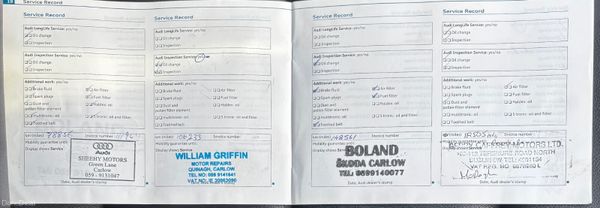 Service Record
Service Record
Audi LongLife Service: yes/no
Oil change
Inspection
Audi Inspection Service: yes/no
Oil change
Inspection
Additional work: yes/no
Brake fluid
Air filter
Spark plugs
Fuel filter
Dust and
pollen filter element
Haldex: oil
multitronic: oil
S tronic: oil and filter
Toothed belt
Invoice number
Mobility guarantee until:
Display shows Service
Audi
SHEEHY MOTORS
Green Lane
Carlow
059 - 9131047
Date, Audi dealer's stamp
Service Record
Service Record
Audi LongLife Service: yes/no
Oil change
Inspection
Audi Inspection Service: yes/no
Oil change
Inspection
Additional work: yes/no
Brake fluid
Air filter
Spark plugs
Fuel filter
Dust and
pollen filter element
Haldex: oil
multitronic: oil
S tronic: oil and filter
Toothed belt
Invoice number
Mobility guarantee until:
Display shows Service
WILLIAM GRIFFIN
MOTOR REPAIRS
QUINAGH, CARLOW
Date, Audi dealer's stamp
Service Record
Service Record
Audi LongLife Service: yes/no
Oil change
Inspection
Audi Inspection Service: yes/no
Oil change
Inspection
Additional work: yes/no
Brake fluid
Air filter
Spark plugs
Fuel filter
Dust and
pollen filter element
Haldex: oil
multitronic: oil
S tronic: oil and filter
Toothed belt
Invoice number
Mobility guarantee until:
Display shows Service
BOLAND
ŠKODA CARLOW
TEL: 0599140077
Date, Audi dealer's stamp
Service Record
Service Record
Audi LongLife Service: yes/no
Oil change
Inspection
Audi Inspection Service: yes/no
Oil change
Inspection
Additional work: yes/no
Brake fluid
Air filter
Spark plugs
Fuel filter
Dust and
pollen filter element
Haldex: oil
multitronic: oil
S tronic: oil and filter
Toothed belt
Invoice number
Mobility guarantee until:
Display shows Service
MOTORS LTD.
ROAD NORTH
Date, Audi dealer's stamp